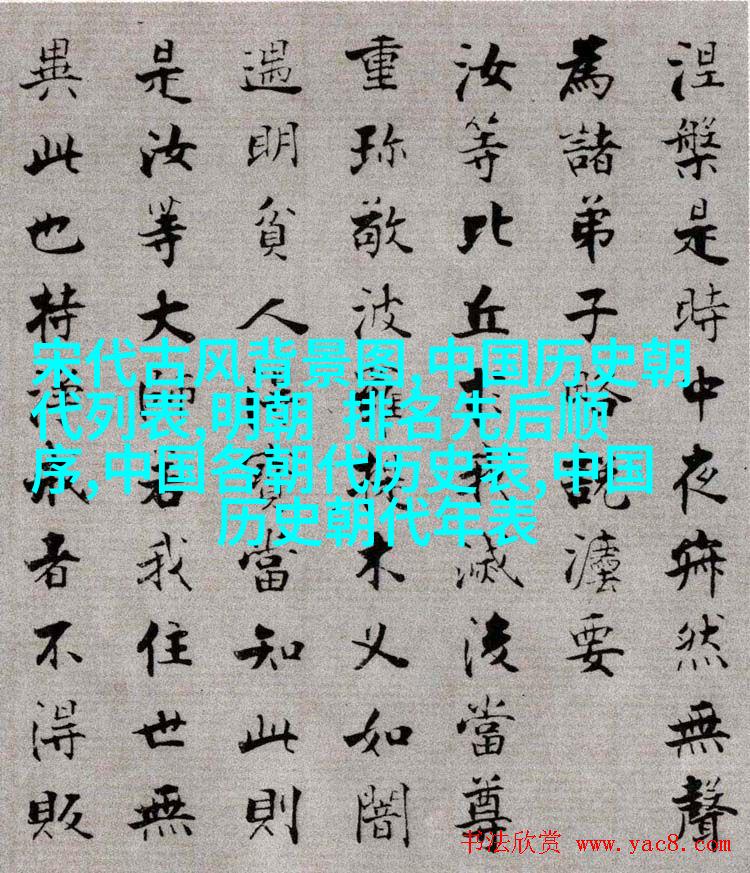 涅槃是時中夜寂然無聲
為諸弟子略說灋要
汝等比丘於我滅後當尊
重珍敬波羅提木叉如闇
遇明貧人得寶當知此則
是汝等大師若我住世無
異此也持淨戒者不得販
宋代古风背景图,中国历史朝
代列表,明朝 排名先后顺
序,中国各朝代历史表,中国
历史朝代年表
书法欣赏 www.yac8.com